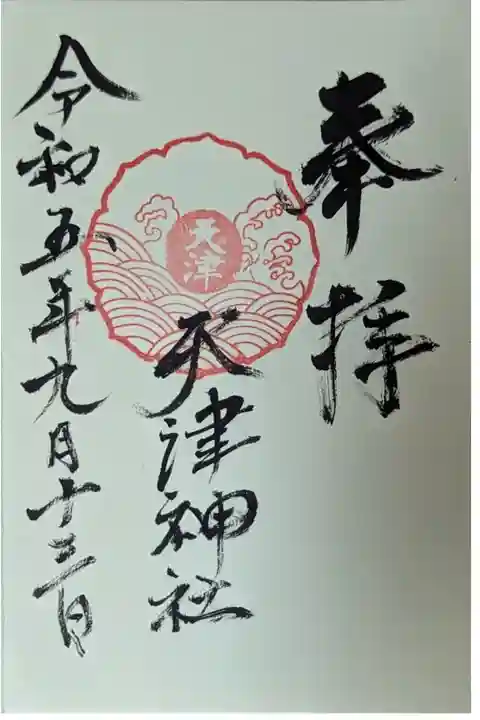 奉拝
天津
天津神社
令和五年九月十三日